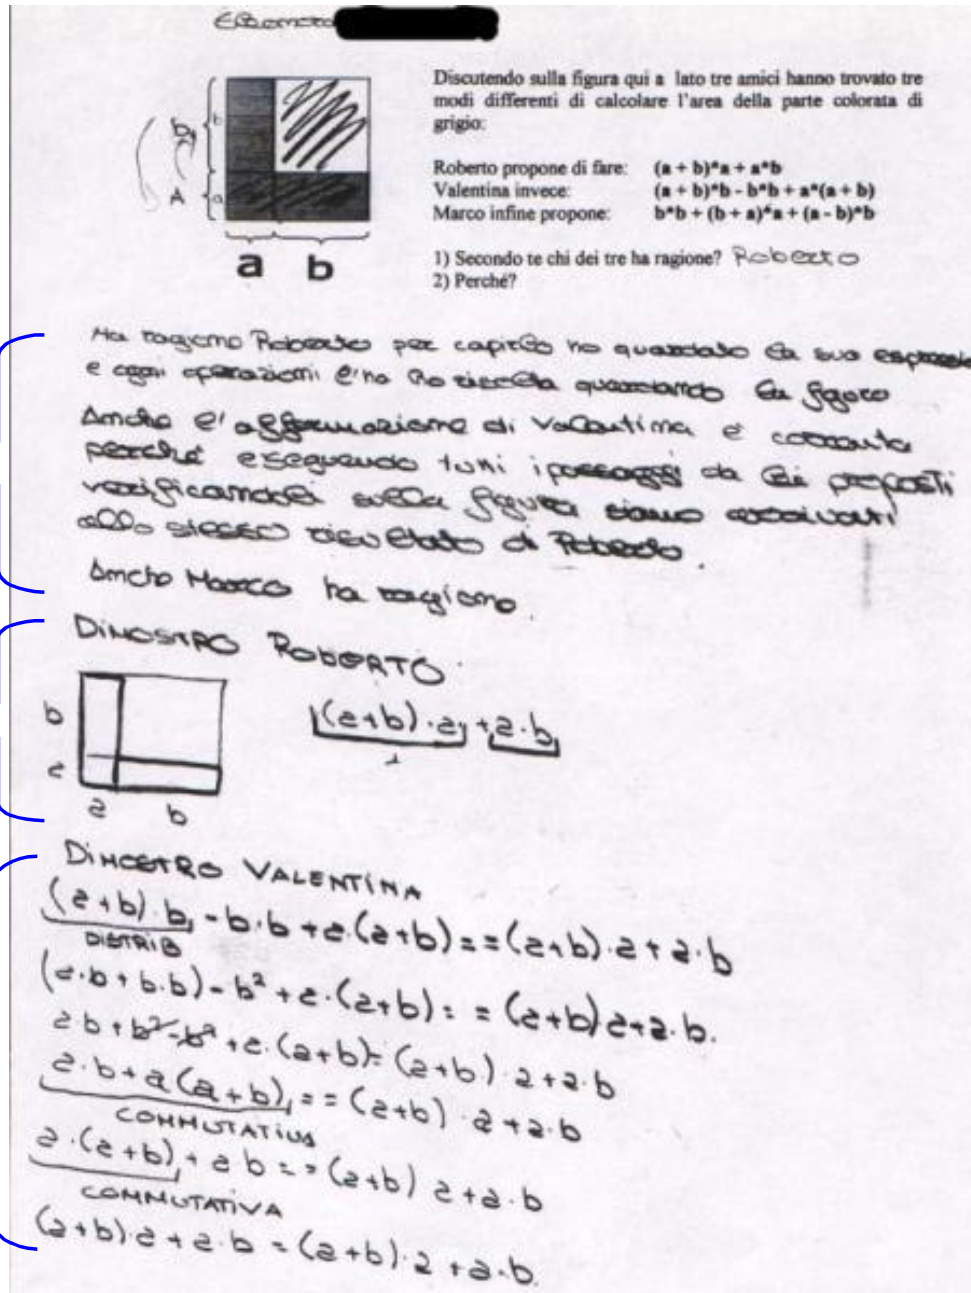 Eleonora
Discutendo sulla figura qui a lato tre amici hanno trovato tre
modi differenti di calcolare l'area della parte colorata di
grigio:
Roberto propone di fare: (a + b)*a + a*b
Valentina invece: (a + b)*b - b*b + a*(a + b)
Marco infine propone: b*b + (b + a)*a + (a - b)*b
1) Secondo te chi dei tre ha ragione? Roberto
2) Perché?
b
b
A
a
a b
Ha ragione Roberto per capirlo ho guardato la sua
e ogni operazioni l'ho guardando la figura
Anche l'affermazione di Valentina è
perché eseguendo tutti i passaggi da lei proposti
verificandoli sulla figura siamo arrivati
allo stesso risultato di Roberto.
Anche Marco ha ragione.
DIMOSTRO ROBERTO
b
a
a b
(a+b)·a + a·b
DIMOSTRO VALENTINA
(a+b)·b - b·b + a·(a+b) = =(a+b)·a + a·b
DISTRIB
(a·b + b·b) - b² + a·(a+b) = = (a+b)a+a·b.
a·b + b² - b² + a·(a+b) = (a+b)·a+a·b
a·b + a(a+b) = =(a+b)·a+a·b
COMMUTATIVA
a·(a+b) + ab = =(a+b)a+a·b
COMMUTATIVA
(a+b)·a + a·b = (a+b)·a +a·b.